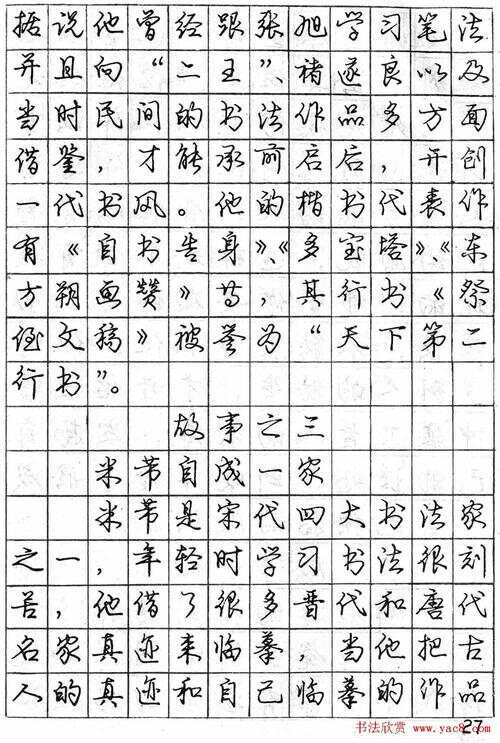 据说他曾经跟张旭学习笔法
并且向“二王”、褚遂良以及
当时民间的书法作品多方面
借鉴，才能承前启后，开创
一代书风。他的楷书代表作
有《自书告身》、《多宝塔》、《东
方朔画赞》等，其行书《祭
侄文稿》被誉为“天下第二
行书”。
故事之三
米芾自成一家
米芾是宋代四大书法家
之一，年轻时学习书法很刻
苦，他借了很多晋代和唐代
名家真迹来临摹，当他把古
人的真迹和自己临摹的作品
27
书法欣赏 www.yac8.com